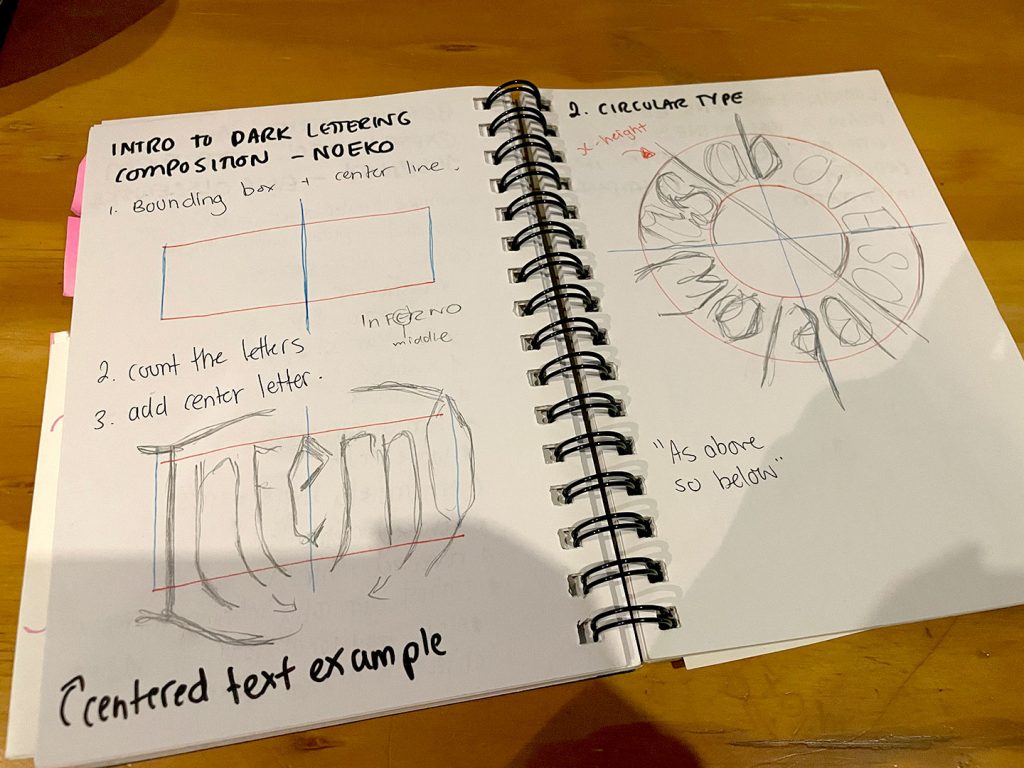 INTRO TO DARK LETTERING
COMPOSITION - NOEKO
1. Bounding box + center line.
InFERNO
middle
2. count the letters
3. add center letter.
Inferno
centered text example
2. CIRCULAR TYPE
x-height
As above so below
"As above
so below"